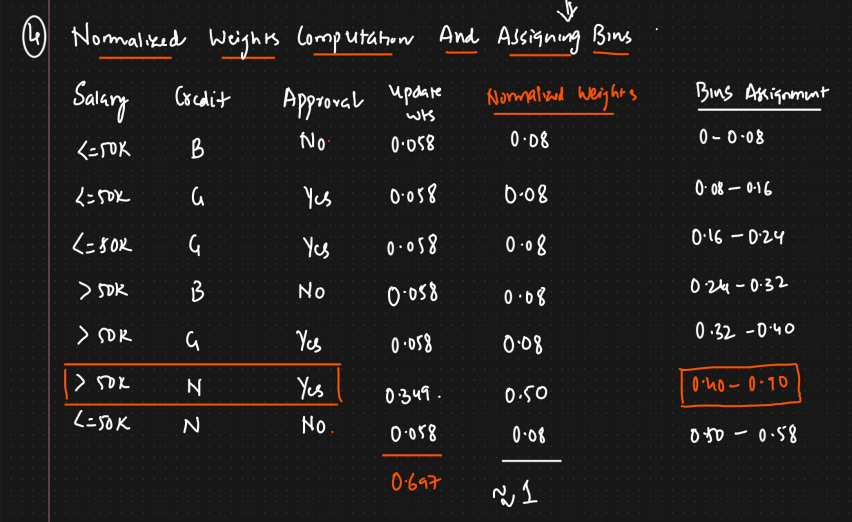 4 Normalized Weights Computation And Assigning Bins
Salary Credit Approval Update wts Normalized Weights Bins Assignment
<=50K B No 0.058 0.08 0-0.08
<=50K G Yes 0.058 0.08 0.08-0.16
<=50K G Yes 0.058 0.08 0.16-0.24
>50K B No 0.058 0.08 0.24-0.32
>50K G Yes 0.058 0.08 0.32-0.40
>50K N Yes 0.349. 0.50 0.40-0.90
<=50K N No. 0.058 0.08 0.50-0.58
0.697 ≈1